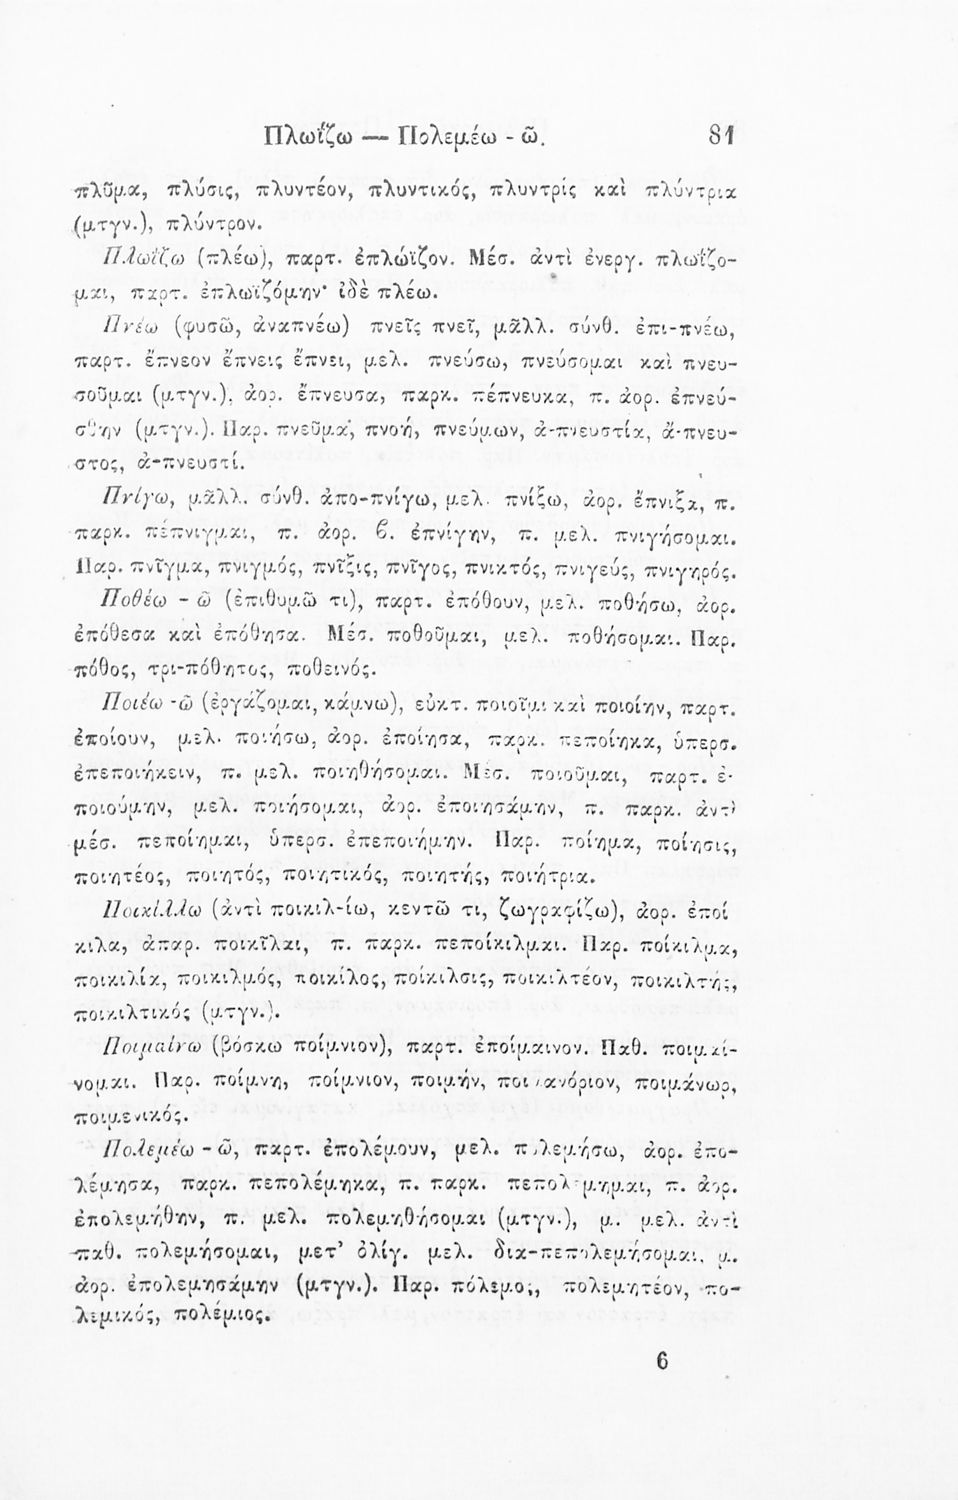 Πλωΐζω — Πολεμέω - ῶ. 81
πλῦμα, πλύσις, πλυντέον, πλυντικός, πλυντρίς καὶ πλύντρια
(μτγν.), πλύντρον.
Πλωΐζω (πλέω), παρτ. ἐπλώϊζον. Μέσ. ἀντὶ ἐνεργ. πλωΐζο-
μαι, παρτ. ἐπλωϊζόμην· ἰδὲ πλέω.
Πνέω (φυσῶ, ἀναπνέω) πνεῖς πνεῖ, μᾶλλ. σύνθ. ἐπι-πνέω,
παρτ. ἔπνεον ἔπνεις ἔπνει, μελ. πνεύσω, πνεύσομαι καὶ πνευ-
σοῦμαι (μτγν.), ἀορ. ἔπνευσα, παρκ. πέπνευκα, π. ἀορ. ἐπνεύ-
σθην (μτγν.). Παρ. πνεῦμα, πνοή, πνεύμων, ἀ-πνευστία, ἄ-πνευ-
στος, ἀ-πνευστί.
Πνίγω, μᾶλλ. σύνθ. ἀπο-πνίγω, μελ. πνίξω, ἀορ. ἔπνιξα, π.
παρκ. πέπνιγμαι, π. ἀορ. β. ἐπνίγην, π. μελ. πνιγήσομαι.
Παρ. πνῖγμα, πνιγμός, πνῖξις, πνῖγος, πνικτός, πνιγεύς, πνιγηρός.
Ποθέω - ῶ (ἐπιθυμῶ τι), παρτ. ἐπόθουν, μελ. ποθήσω, ἀορ.
ἐπόθεσα καὶ ἐπόθησα. Μέσ. ποθοῦμαι, μελ. ποθήσομαι. Παρ.
πόθος, τρι-πόθητος, ποθεινός.
Ποιέω -ῶ (ἐργάζομαι, κάμνω), εὐκτ. ποιοῖμι καὶ ποιοίην, παρτ.
ἐποίουν, μελ. ποιήσω, ἀορ. ἐποίησα, παρκ. πεποίηκα, ὑπερσ.
ἐπεποιήκειν, π. μελ. ποιηθήσομαι. Μέσ. ποιοῦμαι, παρτ. ἐ-
ποιούμην, μελ. ποιήσομαι, ἀορ. ἐποιησάμην, π. παρκ. ἀντὶ
μέσ. πεποίημαι, ὑπερσ. ἐπεποιήμην. Παρ. ποίημα, ποίησις,
ποιητέος, ποιητός, ποιητικός, ποιητής, ποιήτρια.
Ποικίλλω (ἀντὶ ποικιλ-ίω, κεντῶ τι, ζωγραφίζω), ἀορ. ἐποί
κιλα, ἀπαρ. ποικῖλαι, π. παρκ. πεποίκιλμαι. Παρ. ποίκιλμα,
ποικιλία, ποικιλμός, ποικίλος, ποίκιλσις, ποικιλτέον, ποικιλτής,
ποικιλτικός (μτγν.).
Ποιμαίνω (βόσκω ποίμνιον), παρτ. ἐποίμαινον. Παθ. ποιμαί-
νομαι. Παρ. ποίμνη, ποίμνιον, ποιμήν, ποιμανόριον, ποιμάνωρ,
ποιμενικός.
Πολεμέω - ῶ, παρτ. ἐπολέμουν, μελ. πολεμήσω, ἀορ. ἐπο-
λέμησα, παρκ. πεπολέμηκα, π. παρκ. πεπολέμημαι, π. ἀορ.
ἐπολεμήθην, π. μελ. πολεμηθήσομαι (μτγν.), μ. μελ. ἀντὶ
παθ. πολεμήσομαι, μετ’ ὀλίγ. μελ. δια-πεπολεμήσομαι, μ.
ἀορ. ἐπολεμησάμην (μτγν.). Παρ. πόλεμος, πολεμητέον, πο-
λεμικός, πολέμιος.
6